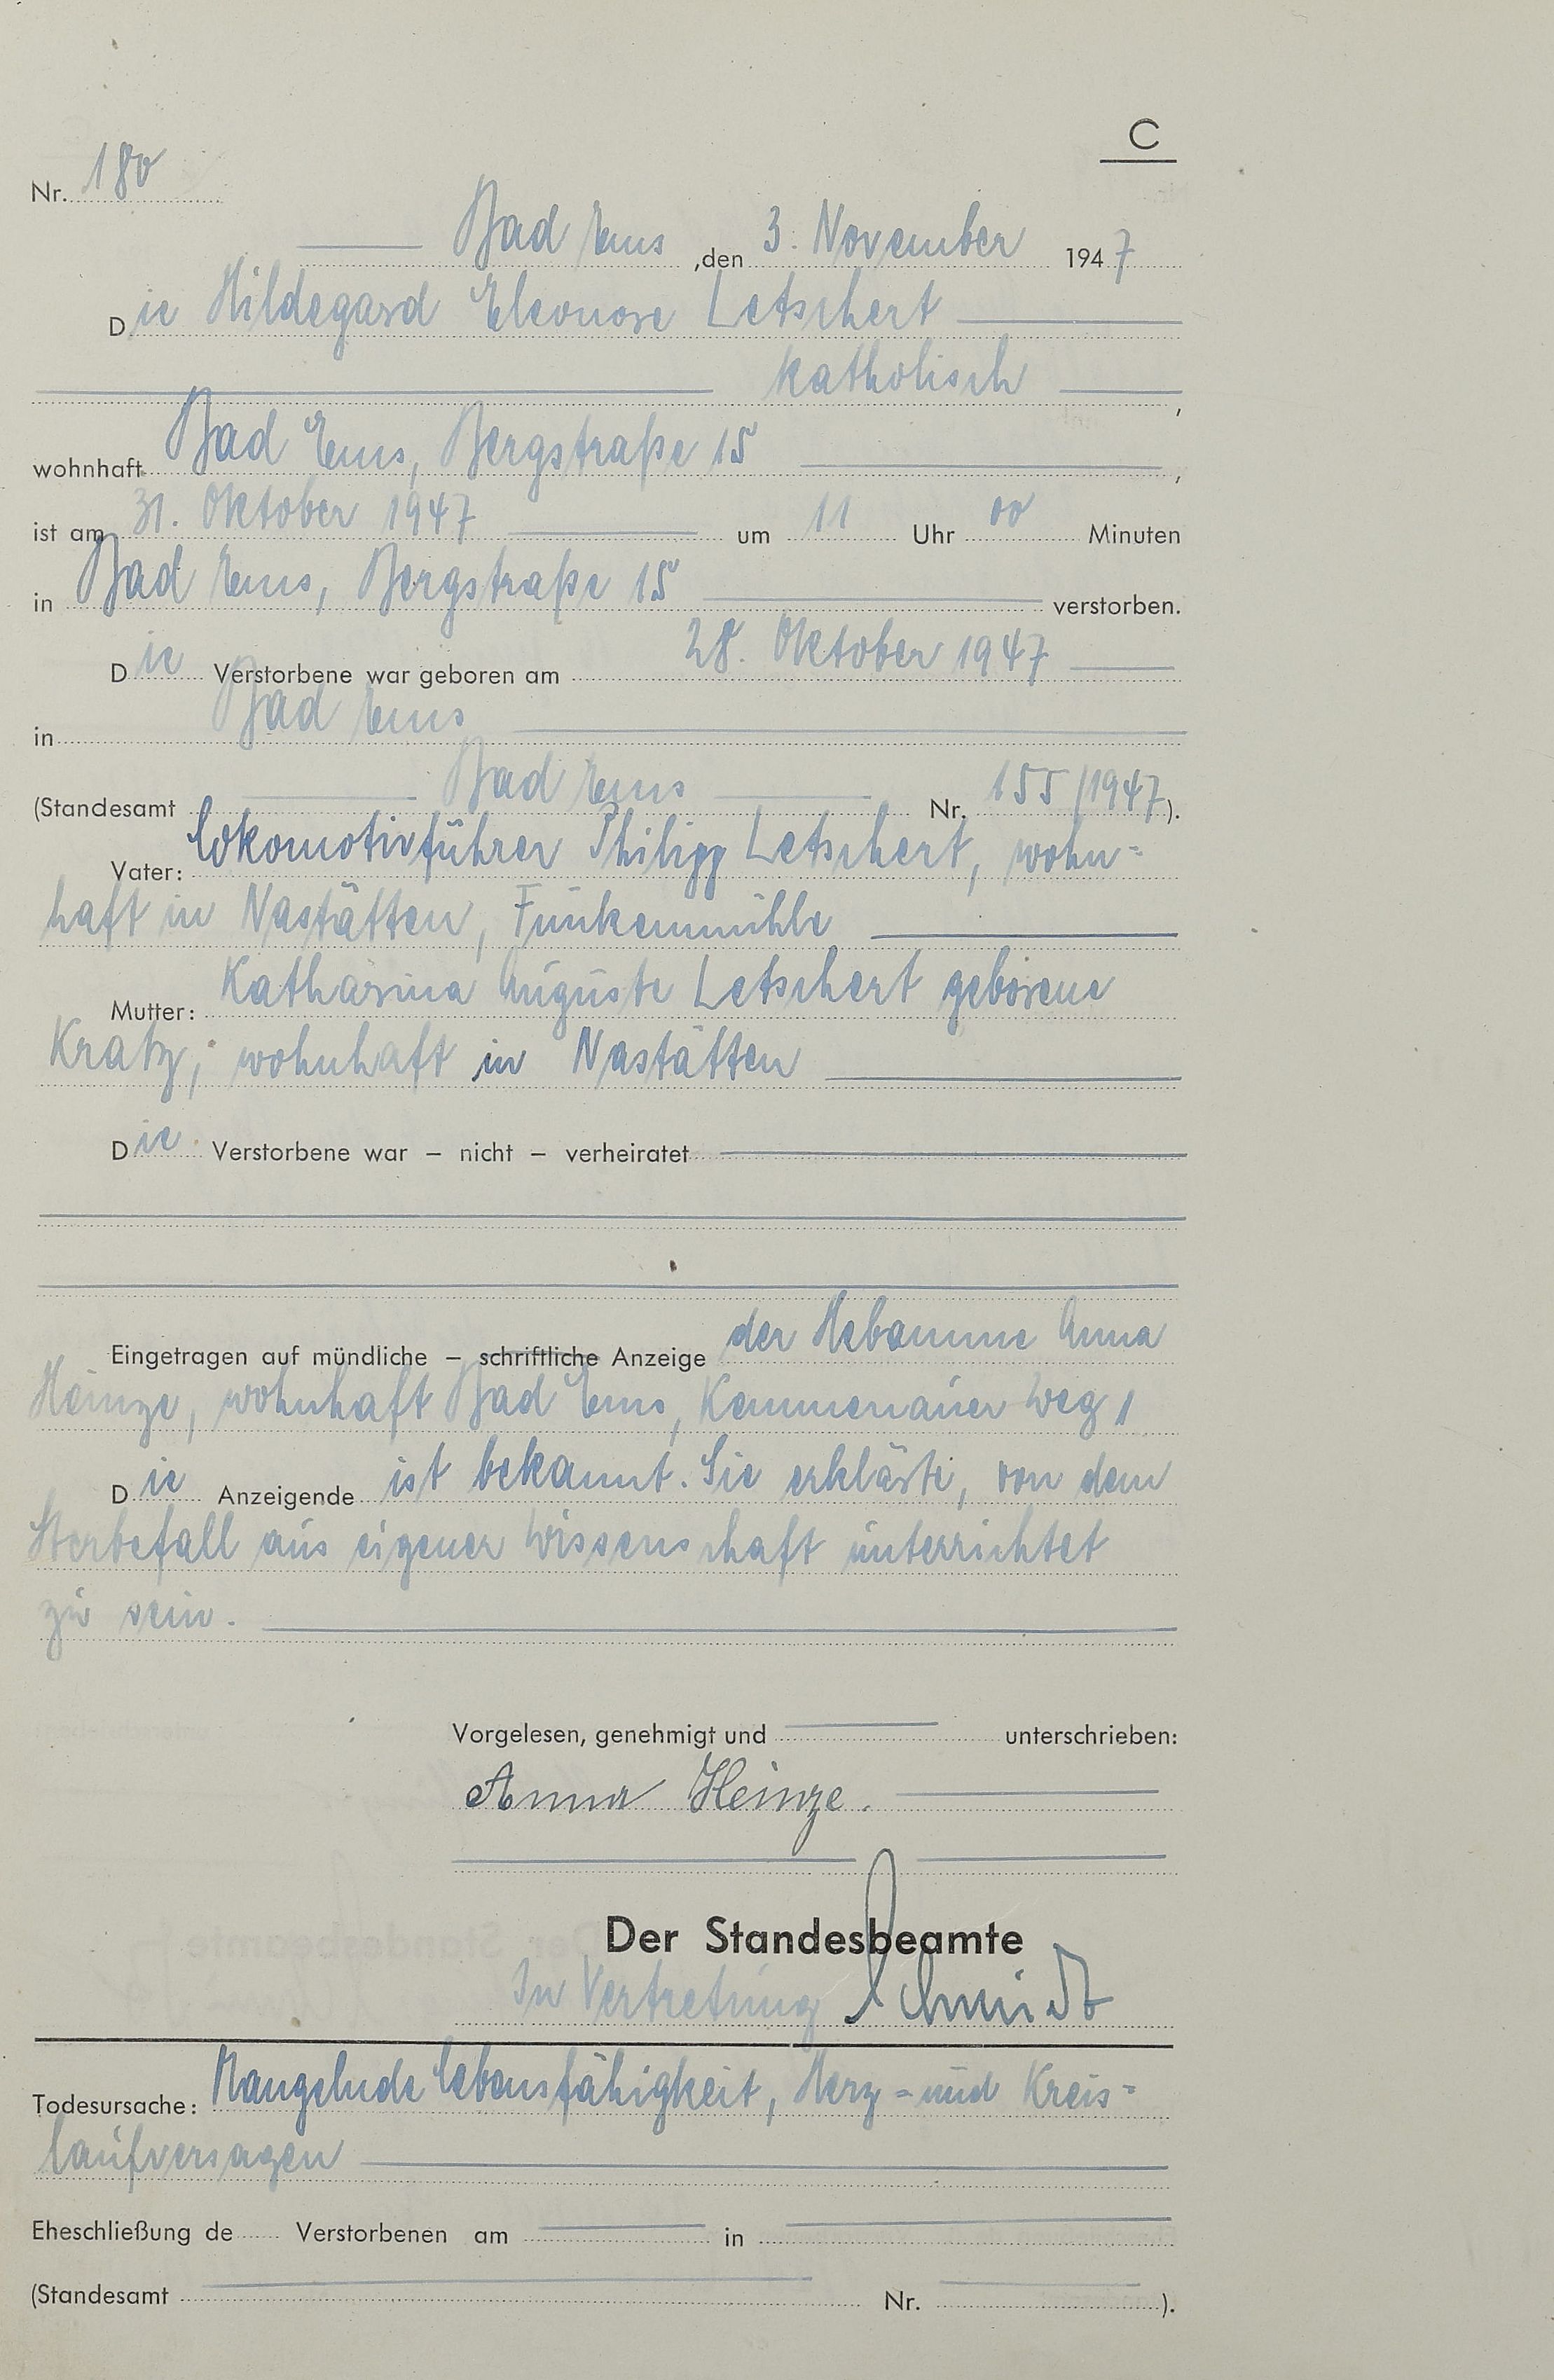 C
Nr. 180
Bad Ems, den 3. November 1947
Die Hildegard Eleonore Letschert
katholisch,
wohnhaft Bad Ems, Bergstraße 15,
ist am 31. Oktober 1947 um 11 Uhr 00 Minuten
in Bad Ems, Bergstraße 15 verstorben.
Die Verstorbene war geboren am 28. Oktober 1947
in Bad Ems
(Standesamt Bad Ems Nr. 155/1947).
Vater: Lokomotivführer Philipp Letschert, wohn-
haft in Nastätten, Funkenmühle
Mutter: Katharina Auguste Letschert geborene
Kratz, wohnhaft in Nastätten
Die Verstorbene war – nicht – verheiratet
Eingetragen auf mündliche – schriftliche Anzeige der Hebamme Anna
Heinze, wohnhaft Bad Ems, Kemmenauer Weg 1
Die Anzeigende ist bekannt. Sie erklärte, von dem
Sterbefall aus eigener Wissenschaft unterrichtet
zu sein.
Vorgelesen, genehmigt und unterschrieben:
Anna Heinze.
Der Standesbeamte
In Vertretung Schmidt
Todesursache: Mangelnde Lebensfähigkeit, Herz- und Kreis-
laufversagen
Eheschließung de Verstorbenen am in
(Standesamt Nr. ).